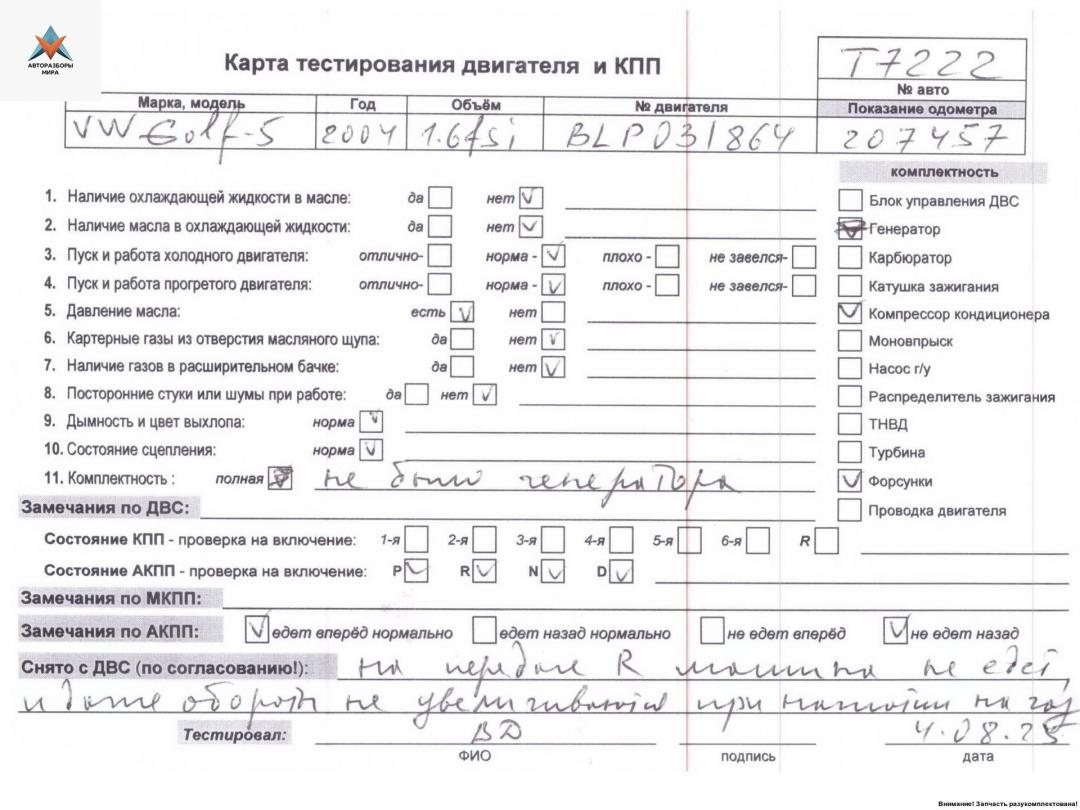 АВТОРАЗБОРЫ
МИРА
Карта тестирования двигателя и КПП
T7222
№ авто
Марка, модель Год Объём № двигателя Показание одометра
VW Golf-5 2004 1.6fsi BLP031864 207457
комплектность
1. Наличие охлаждающей жидкости в масле: да нет
Блок управления ДВС
2. Наличие масла в охлаждающей жидкости: да нет
Генератор
3. Пуск и работа холодного двигателя: отлично- норма - плохо - не завелся-
Карбюратор
4. Пуск и работа прогретого двигателя: отлично- норма - плохо - не завелся-
Катушка зажигания
5. Давление масла: есть нет
Компрессор кондиционера
6. Картерные газы из отверстия масляного щупа: да нет
Моновпрыск
7. Наличие газов в расширительном бачке: да нет
Насос г/у
8. Посторонние стуки или шумы при работе: да нет
Распределитель зажигания
9. Дымность и цвет выхлопа: норма
ТНВД
10. Состояние сцепления: норма
Турбина
11. Комплектность : полная не было генератора
Форсунки
Замечания по ДВС:
Проводка двигателя
Состояние КПП - проверка на включение: 1-я 2-я 3-я 4-я 5-я 6-я R
Состояние АКПП - проверка на включение: P R N D
Замечания по МКПП:
Замечания по АКПП: едет вперёд нормально едет назад нормально не едет вперёд не едет назад
Снято с ДВС (по согласованию!): на передаче R машина не едет,
и даже обороты не увеличиваются при нажатии на газ
Тестировал: ВД 4.08.25
ФИО подпись дата
Внимание! Запчасть разукомплектована!